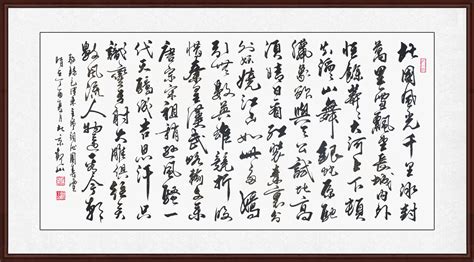 北國風光千里冰封
萬里雪飄望長城內外
惟餘莽莽大河上下頓
失滔滔山舞銀蛇原馳
蠟象欲與天公試比高
須晴日看紅裝素裹分
外妖嬈江山如此多嬌
引無數英雄競折腰
惜秦皇漢武略輸文采
唐宗宋祖稍遜風騷一
代天驕成吉思汗只
識彎弓射大雕俱往矣
數風流人物還看今朝
毛澤東主席詞沁園春雪
丁酉夏月於京